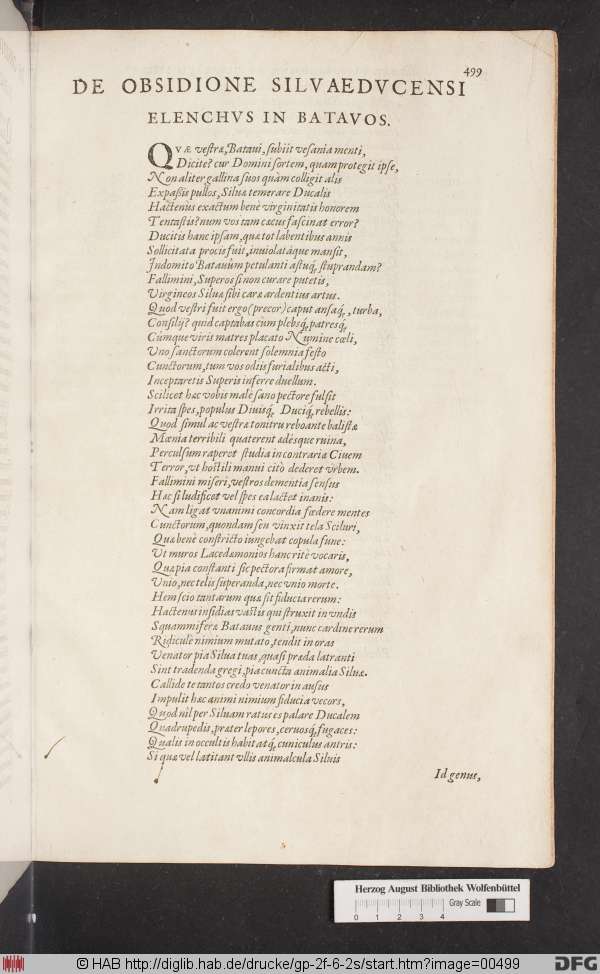 499
DE OBSIDIONE SILVAEDVCENSI
ELENCHVS IN BATAVOS.
QVÆ vestræ, Bataui, subiit vesania menti,
Dicite? cur Domini sortem, quam protegit ipse,
Non aliter gallina suos quàm colligit alis
Expaßis pullos, Siluã temerare Ducalis
Hactenùs exactum benè virginitatis honorem
Tentastis? num vos tam cæcus fascinat error?
Ducitis hanc ipsam, quæ tot labentibus annis
Sollicitata procis fuit, inuiolatáque mansit,
Indomito Batauûm petulanti astuq́, stuprandam?
Fallimini, Superos si non curare putetis,
Virgineos Siluæ sibi caræ ardentius artus.
Quod vestri fuit ergo (precor) caput ansaq́, turba,
Consilij? quid captabas cùm plebsq́, patresq́,
Cùmque viris matres placato Numine cœli,
Vno sanctorum colerent solemnia festo
Cunctorum, tum vos odiis furialibus acti,
Inceptaretis Superis inferre duellum.
Scilicet hæc vobis malè sano pectore fulsit
Irrita spes, populus Diuisq́, Duciq́, rebellis:
Quod simul ac vestræ tonitru reboante balistæ
Mœnia terribili quaterent adèsque ruina,
Perculsum raperet studia in contraria Ciuem
Terror, vt hostili manui citò dederet vrbem.
Fallimini miseri, vestros dementia sensus
Hæc si ludificet vel spes ea lactet inanis:
Nam ligat vnanimi concordia fœdere mentes
Cunctorum, quondam seu vinxit tela Sciluri,
Quæ benè constricto iungebat copula fune:
Vt muros Lacedæmonios hanc ritè vocaris,
Quæ pia constanti sic pectora firmat amore,
Vnio, nec telis superanda, nec vnio morte.
Hem scio tantarum quæ sit fiducia rerum:
Hactenus insidias vastis qui struxit in vndis
Squammiferæ Batauus genti, nunc cardine rerum
Ridiculè nimium mutato, tendit in oras
Venator pia Silua tuas, quasi præda latranti
Sint tradenda gregi, pia cuncta animalia Siluæ.
Callide te tantos credo venator in ausus
Impulit hæc animi nimium fiducia vecors,
Quod nil per Siluam ratus es palare Ducalem
Quadrupedis, præter lepores, ceruosq́, fugaces:
Qualis in occultis habitatq́, cuniculus antris:
Si quæ vel latitant vllis animalcula Siluis
Id genus,
Herzog August Bibliothek Wolfenbüttel
0 1 2 3 4 Gray Scale
© HAB http://diglib.hab.de/drucke/gp-2f-6-2s/start.htm?image=00499
DFG